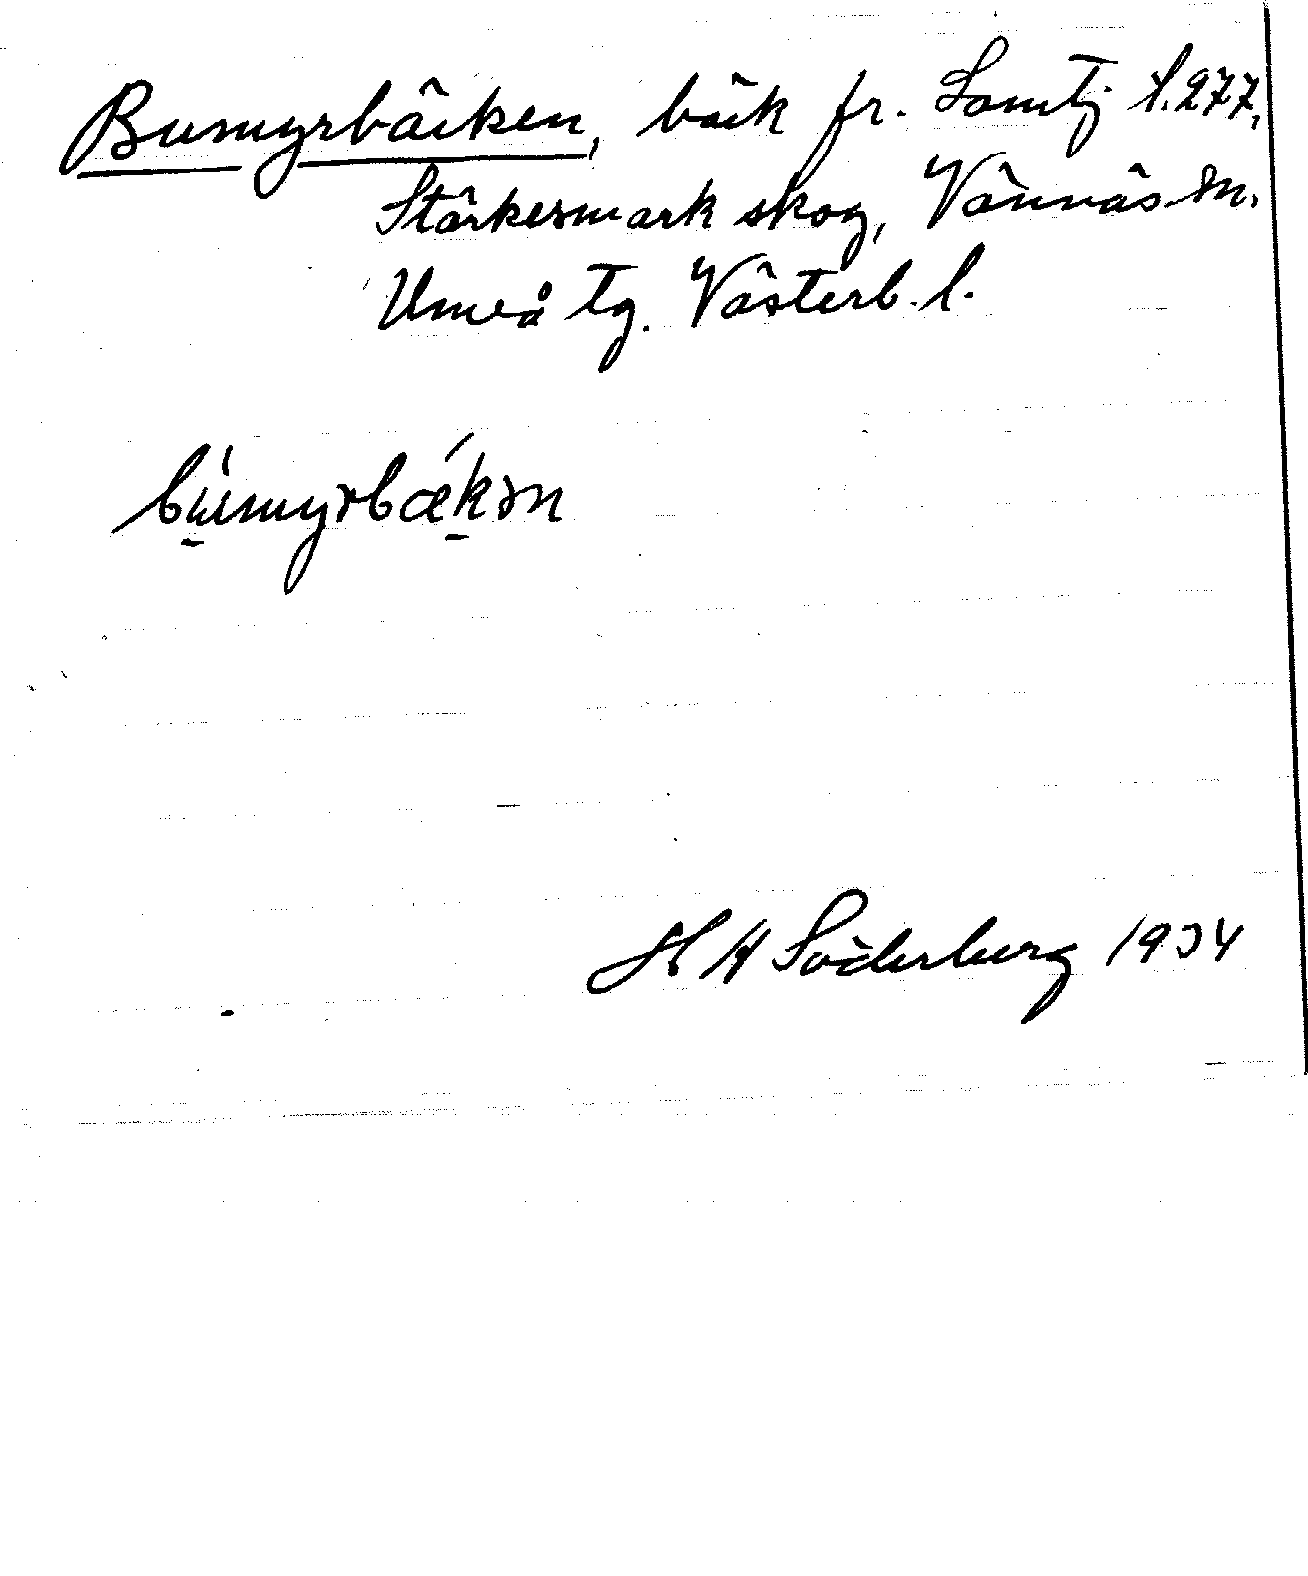 Bumyrbäcken, bäck fr. Lomtj l. 277,
Stärkesmark skog, Vännäs sn.
Umeå tg. Västerb. l.
búmyrbǽkən
H H Söderberg 1934